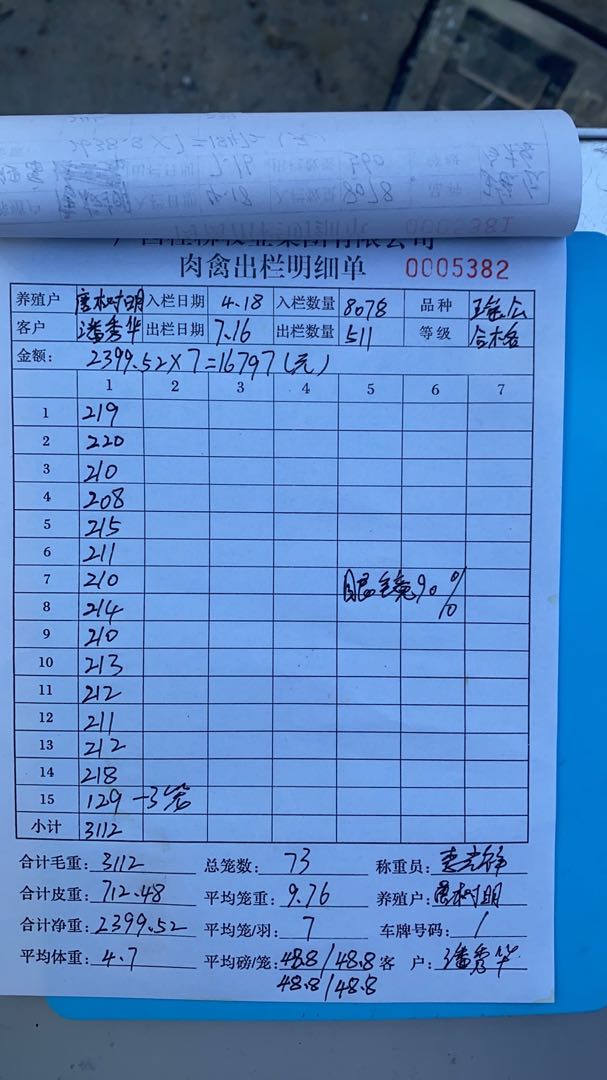 肉禽出栏明细单 0005382
养殖户 唐树明 入栏日期 4.18 入栏数量 8078 品种
客户 潘秀华 出栏日期 7.16 出栏数量 511 等级 合格
金额: 2399.52×7=16797(元)
1 2 3 4 5 6 7
1 219
2 220
3 210
4 208
5 215
6 211
7 210 眼镜90%
8 214
9 210
10 213
11 212
12 211
13 212
14 218
15 129 -3笼
小计 3112
合计毛重: 3112 总笼数: 73 称重员:
合计皮重: 712.48 平均笼重: 9.76 养殖户: 唐树明
合计净重: 2399.52 平均笼/羽: 7 车牌号码: /
平均体重: 4.7 平均磅/笼: 48.8/48.8 客 户: 潘秀华
48.8/48.8